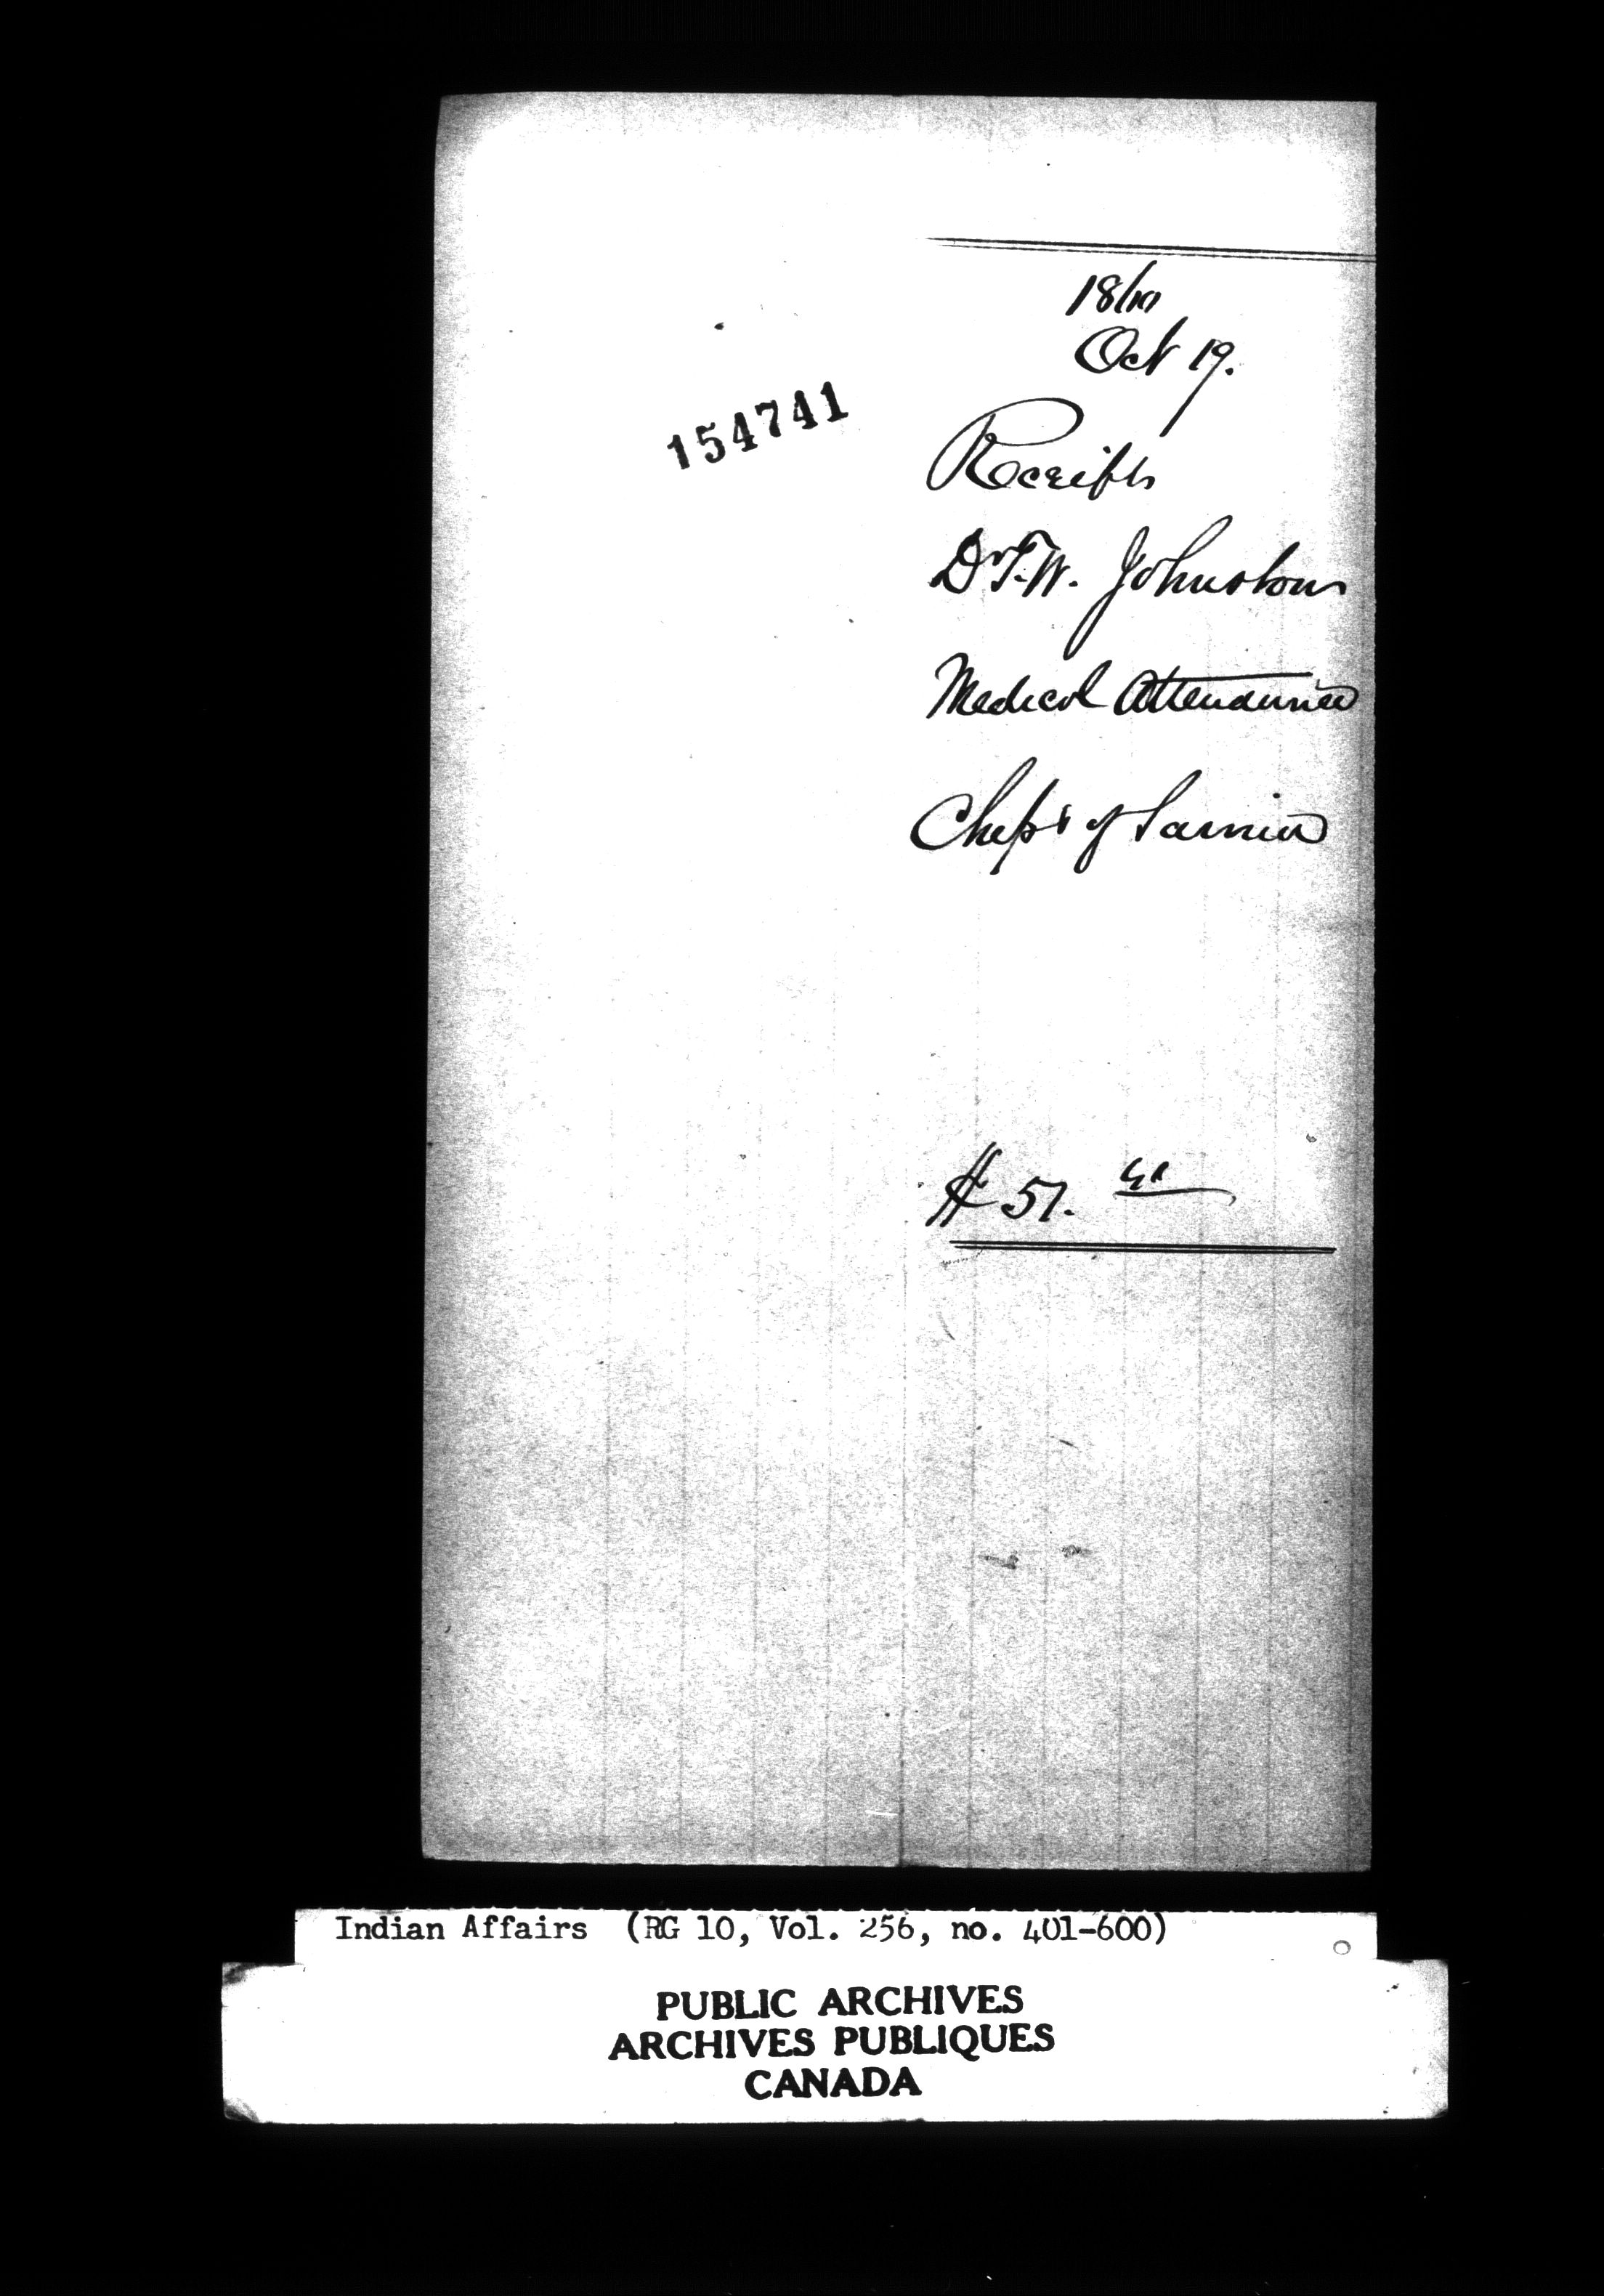 Oct 19.
154741
Receipts
Dr T. W. Johnston
Medical Attendance
Chips of Sarnia
$ 51.
Indian Affairs (RG 10, Vol. 256, no. 401-600)
PUBLIC ARCHIVES
ARCHIVES PUBLIQUES
CANADA